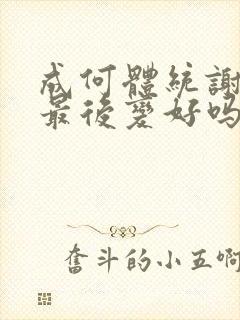 成何體統謝
最後變好吗
奮斗的小五啊